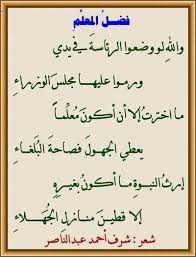 فضل المعلم
واللهِ لو وضعوا الرئاسةَ في يدي
ورموا عليها مجلس الوزراءِ
ما اخترتُ إلا أن أكونَ معلماً
يعطي الجهولَ فصاحةَ البلغاءِ
إرثُ النبوةِ ما أكونُ بغيرِهِ
إلا قطينَ منازلِ الجهلاءِ
شعر : شرف أحمد عبدالناصر